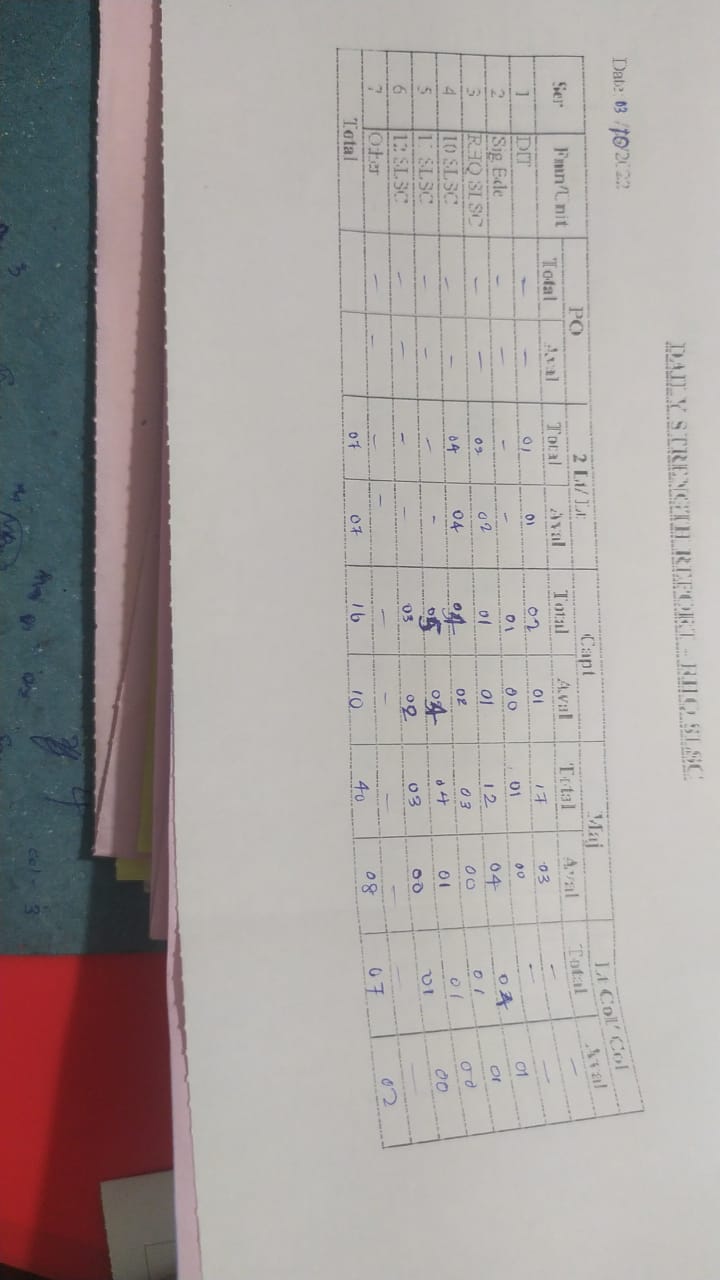 DAILY STRENGTH REPORT - RHQ SLSC
Date: 03/10/2022
Ser Fmn/Unit PO 2 Lt/Lt Capt Maj Lt Col/ Col
Total Aval Total Aval Total Aval Total Aval Total Aval
1 DIT - - 01 01 02 01 17 03 - -
2 Sig Bde - - - - 01 00 01 00 - -
3 RHQ SLSC - - 02 02 01 01 12 04 04 01
4 10 SLSC - - 04 04 04 02 03 00 01 01
5 11 SLSC - - - - 05 04 04 01 01 00
6 12 SLSC - - - - 03 02 03 00 01 00
7 Other - - - - - - - - - -
Total 07 07 16 10 40 08 07 02